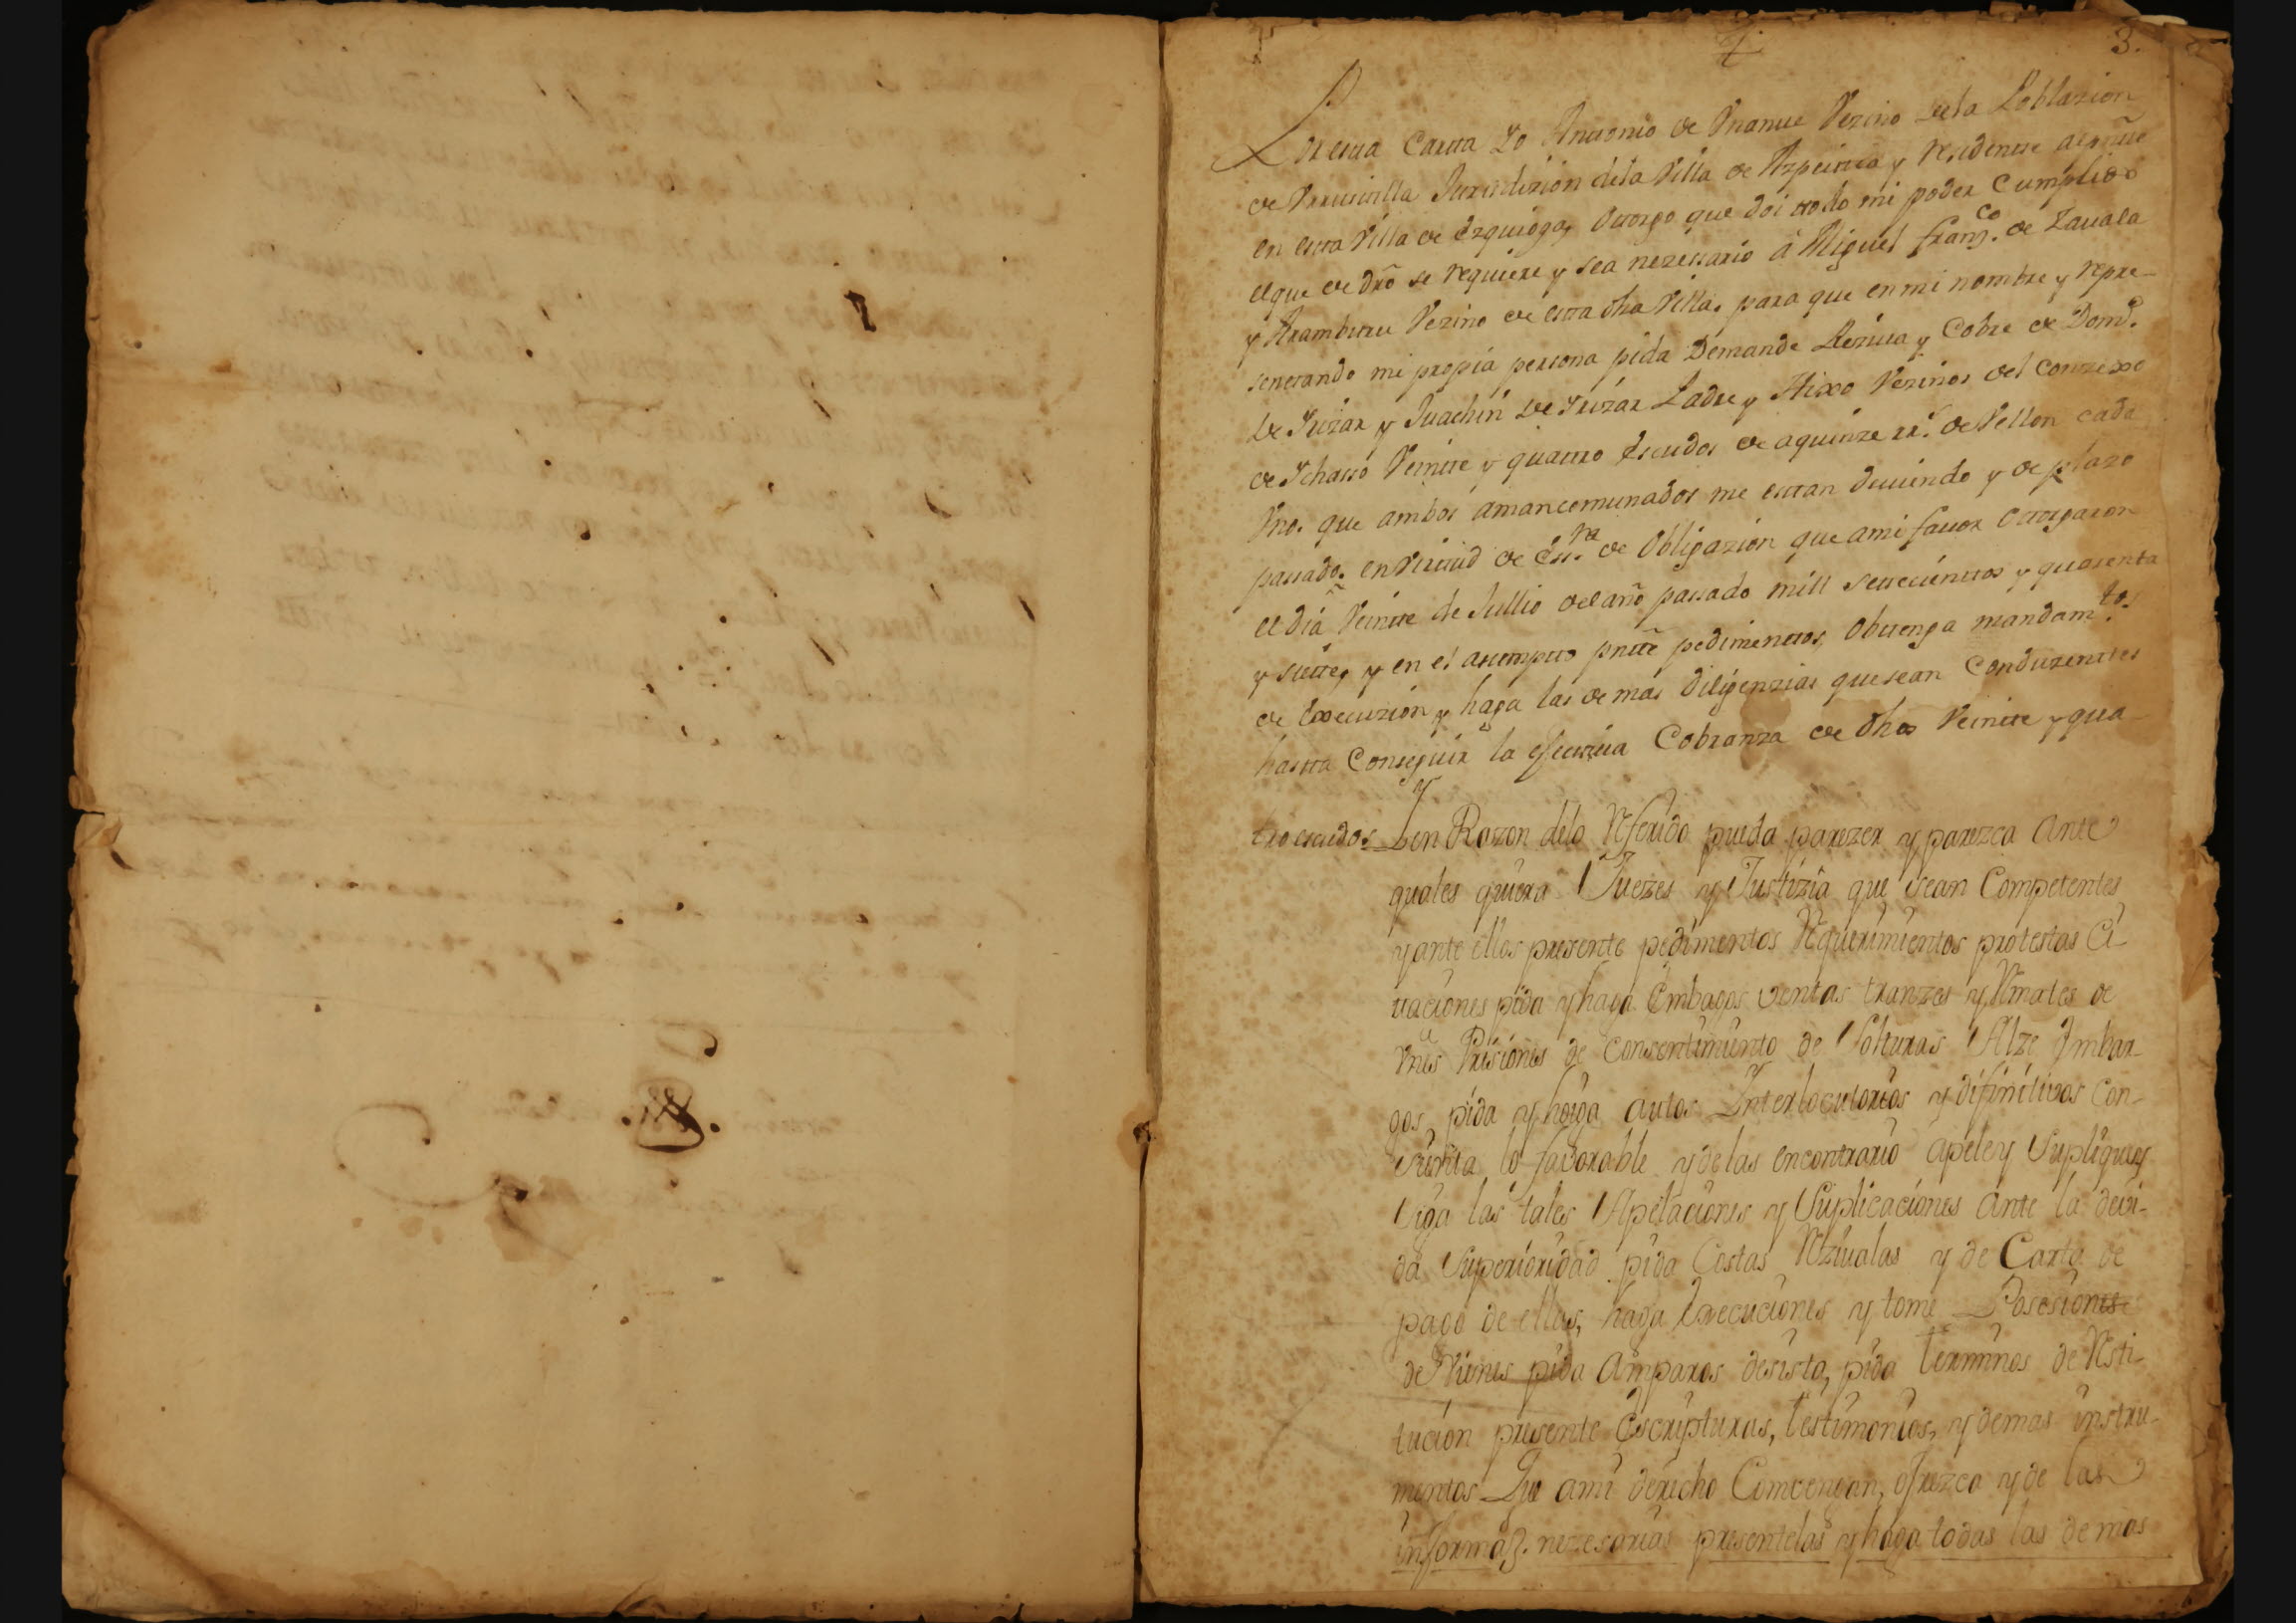 3.
Por esta Carta Yo Antonio de Vnanue Vezino dela Poblazion
de Vrrusuilla Jurisdizion dela Villa de Azpeitia y residente al pñte
en esta Villa de Ezquioga, Otorgo que doi todo mi poder Cumplido
el que de dr̃o se requiere y sea nezessario à Miguel franᶜᵒ. de Zauala
y Aramburu Vezino de esta dha Villa, para que en mi nombre y repre-
sentando mi propia persona pida Demande Reziua y Cobre de Domᵒ.
de Irizar y Juachin de Irizar Padre y Hixo Vezinos del Conzexo
de Ychasso Veinte y quatro Escudos de aquinze rrˢ. de Vellon cada
Vno, que ambos amancomunados me estan deuiendo y de plazo
passado, en Virtud de Essʳᵃ. de Obligazion que ami fauor Otorgaron
el dia Veinte de Jullio del año passado mill settecientos y quarenta
y siete, y en el asumpto pñte pedimentos, Obtenga mandamᵗᵒˢ.
de Execuzion y haga las de mas diligenzias que sean Conduzentes
hasta Conseguir la efectiua Cobranza de dhos Veinte y qua-
tro escudos. Y en Razon delo Referido pueda parezer y parezca ante
quales quiera Juezes y Justizia que sean Competentes
y ante ellos presente pedimentos Requerimientos protestas Ci-
taciones pida y haga Embagos ventas tranzes y Rmates de
Vnes Prisiones de Consentimiento de Solturas Alze Imbar-
gos, pida y hoiga autos Interlocutorios y difinitivos Con-
sienta lo favorable y de las encontrario apele y Suplique y
Siga las tales Apelaciones y Suplicaciones ante la devi-
da Superioridad pida Costas Rziualas y de Carta de
pago de ellas, haga Execuciones y tome Posesiones
de Vienes pida Amparos desista, pida terminos de Resti-
tucion presente Escripturas, testimonios, y demas instru-
mentos Que ami derecho Comvengan, ofrezca y de las
informaz. nezesarias presentelas y haga todas las de mas